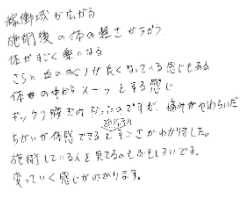 稼働域が広がる
施術後の体の軽さがちがう
体がすごく楽になる
さらに血のめぐりが良くなっている感じもある
体の中からスーっとする感じ
ギックリ腰きのだったのですが、痛みがやわらいだ
ちがいが体感できるとすごさがわかりました。
施術している人を見てるのもおもしろいです。
変っていく感じがわかります。